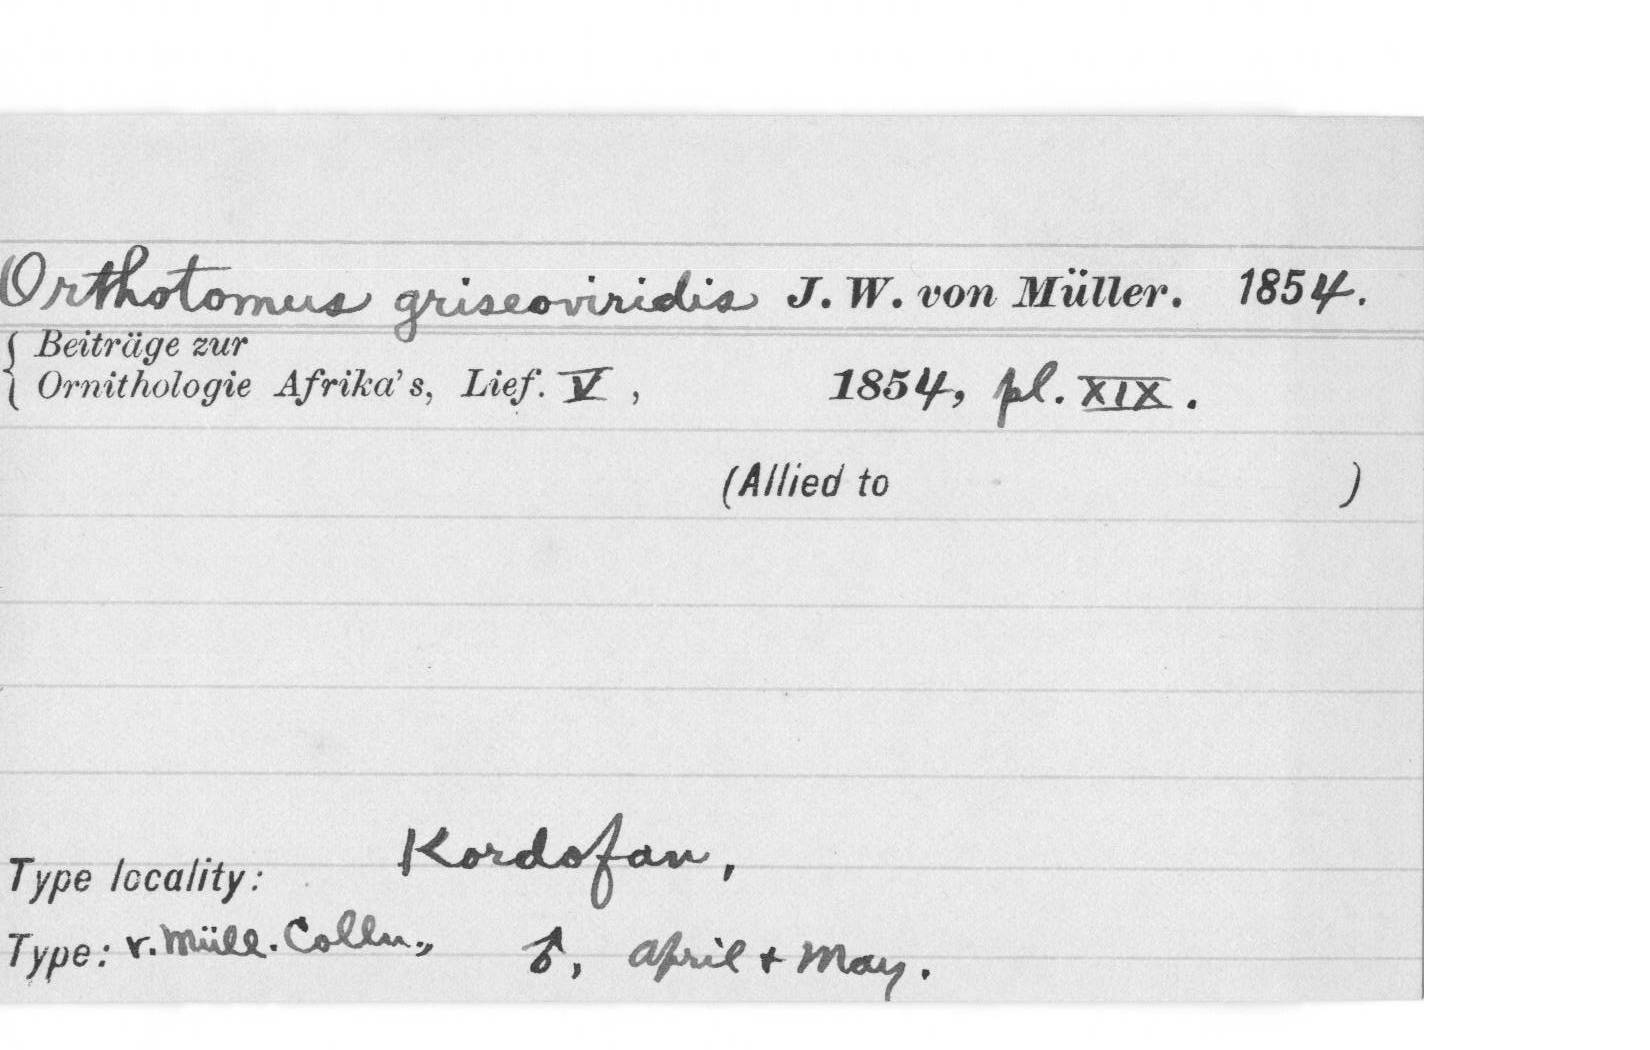 Orthotomus griseoviridis J. W. von Müller. 1854.
Beiträge zur
Ornithologie Afrika's, Lief. V, 1854, pl. XIX.
(Allied to )
Type locality: Kordofan,
Type: v. Müll. Colln., ♂, April + May.